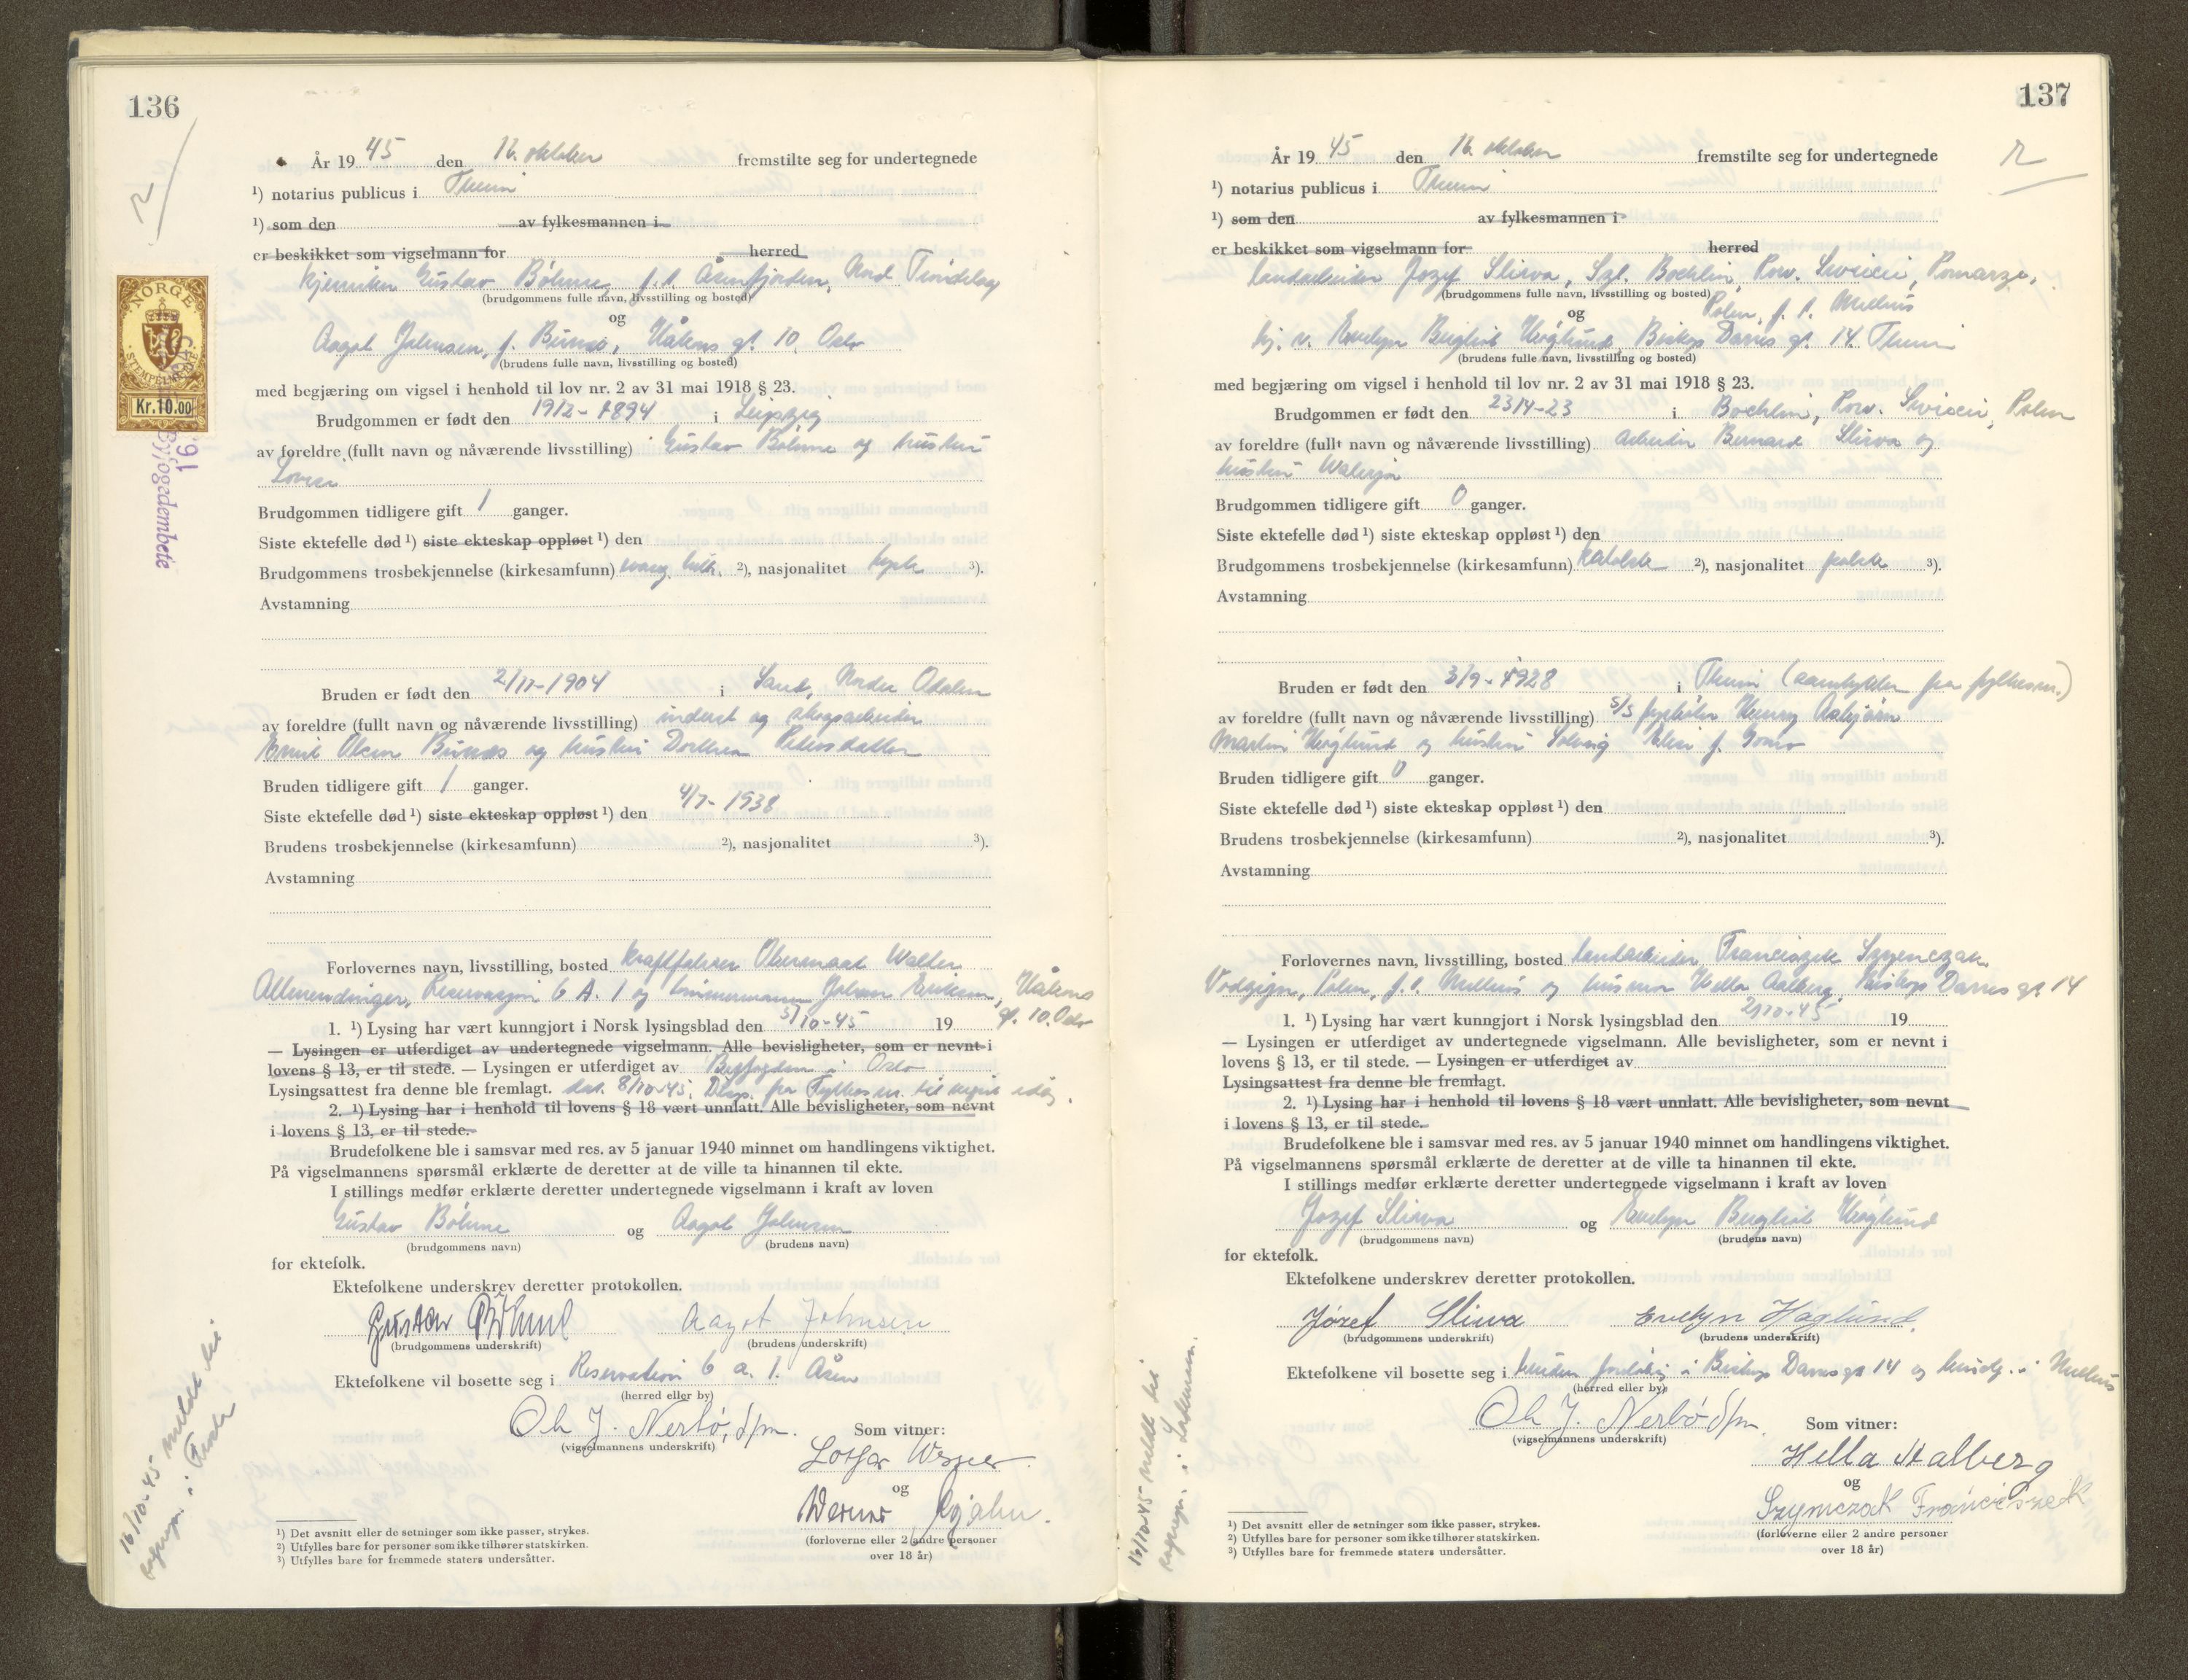 136
År 19 45 den 16. oktober fremstilte seg for undertegnede
¹) notarius publicus i Thrm
¹) som den av fylkesmannen i
er beskikket som vigselmann for herred
Gustav Böhme, f. t. Åsenfjorden, Nord Trøndelag
(brudgommens fulle navn, livsstilling og bosted)
og
Aagot Johnsen, f. Bunæs, Håkons gt. 10, Oslo
(brudens fulle navn, livsstilling og bosted)
med begjæring om vigsel i henhold til lov nr. 2 av 31 mai 1918 § 23.
Brudgommen er født den 19/2-1894 i Leipzig
av foreldre (fullt navn og nåværende livsstilling) Gustav Böhme og hustru
Brudgommen tidligere gift 1 ganger.
Siste ektefelle død ¹) siste ekteskap oppløst ¹) den
Brudgommens trosbekjennelse (kirkesamfunn) evang. luth. ²), nasjonalitet tysk ³).
Avstamning
Bruden er født den 2/11-1904 i Sand, Nordre Odalen
av foreldre (fullt navn og nåværende livsstilling) inderst og skogsarbeider
Emil Olsen Bunæs og hustru Dorthea Petersdatter
Bruden tidligere gift 1 ganger.
Siste ektefelle død ¹) siste ekteskap oppløst ¹) den 4/7-1938
Brudens trosbekjennelse (kirkesamfunn) ²), nasjonalitet ³).
Avstamning
Forlovernes navn, livsstilling, bosted Kraftfahrer Obermaat Walter
Allmendinger, Reservasjon 6 A. 1 og tømmermann Johan Eriksen, Håkons
gt. 10. Oslo
1. ¹) Lysing har vært kunngjort i Norsk lysingsblad den 5/10-45 19
— Lysingen er utferdiget av undertegnede vigselmann. Alle bevisligheter, som er nevnt i
lovens § 13, er til stede. — Lysingen er utferdiget av Byfogden i Oslo
Lysingsattest fra denne ble fremlagt. dat. 8/10-45. Disp. fra Fylkesm. til vigsel idag.
2. ¹) Lysing har i henhold til lovens § 18 vært unnlatt. Alle bevisligheter, som nevnt
i lovens § 13, er til stede.
Brudefolkene ble i samsvar med res. av 5 januar 1940 minnet om handlingens viktighet.
På vigselmannens spørsmål erklærte de deretter at de ville ta hinannen til ekte.
I stillings medfør erklærte deretter undertegnede vigselmann i kraft av loven
Gustav Böhme og Aagot Johnsen
(brudgommens navn) (brudens navn)
for ektefolk.
Ektefolkene underskrev deretter protokollen.
Gustav Böhme Aagot Johnsen
(brudgommens underskrift) (brudens underskrift)
Ektefolkene vil bosette seg i Reservation 6 a. 1. Åsen
(herred eller by)
Ole J. Nerbö, d/m.
(vigselmannens underskrift)
Som vitner:
Lothar Wesser
og
Werner
(forloverne eller 2 andre personer
over 18 år)
¹) Det avsnitt eller de setninger som ikke passer, strykes.
²) Utfylles bare for personer som ikke tilhører statskirken.
³) Utfylles bare for fremmede staters undersåtter.
NORGE
STEMPELMERKE
Kr.10.00
Byfogedembete
16/10-45 meldt til
137
År 19 45 den 16. oktober fremstilte seg for undertegnede
¹) notarius publicus i Thrm
¹) som den av fylkesmannen i
er beskikket som vigselmann for herred
landarbeider Jozef Sliwa, Szl. Bochlin, Pow. Swiecie, Pomorze,
(brudgommens fulle navn, livsstilling og bosted)
Polen, f. t. Melhus
og
Evelyn Buglioh Høglund, Biskop Darres gt. 14. Thrm
(brudens fulle navn, livsstilling og bosted)
med begjæring om vigsel i henhold til lov nr. 2 av 31 mai 1918 § 23.
Brudgommen er født den 23/4-23 i Bochlin, Pow. Swiecie, Polen
av foreldre (fullt navn og nåværende livsstilling) arbeider Bernard Sliwa og
hustru Walerja
Brudgommen tidligere gift 0 ganger.
Siste ektefelle død ¹) siste ekteskap oppløst ¹) den
Brudgommens trosbekjennelse (kirkesamfunn) katolsk ²), nasjonalitet polsk ³).
Avstamning
Bruden er født den 3/9-1928 i Thrm (samtykke fra fylkesm.)
av foreldre (fullt navn og nåværende livsstilling) s/s fyrbøter Henry Asbjørn
Martin Høglund og hustru Solveig Elise f.
Bruden tidligere gift 0 ganger.
Siste ektefelle død ¹) siste ekteskap oppløst ¹) den
Brudens trosbekjennelse (kirkesamfunn) ²), nasjonalitet ³).
Avstamning
Forlovernes navn, livsstilling, bosted landarbeider Franciszek Szymczak,
Polen, f. t. Melhus og husmor Hella Aalberg, Biskop Darres gt. 14
1. ¹) Lysing har vært kunngjort i Norsk lysingsblad den 2/10-45 19
— Lysingen er utferdiget av undertegnede vigselmann. Alle bevisligheter, som er nevnt i
lovens § 13, er til stede. — Lysingen er utferdiget av
Lysingsattest fra denne ble fremlagt.
2. ¹) Lysing har i henhold til lovens § 18 vært unnlatt. Alle bevisligheter, som nevnt
i lovens § 13, er til stede.
Brudefolkene ble i samsvar med res. av 5 januar 1940 minnet om handlingens viktighet.
På vigselmannens spørsmål erklærte de deretter at de ville ta hinannen til ekte.
I stillings medfør erklærte deretter undertegnede vigselmann i kraft av loven
Jozef Sliwa og Evelyn Buglioh Høglund
(brudgommens navn) (brudens navn)
for ektefolk.
Ektefolkene underskrev deretter protokollen.
Józef Sliwa Evelyn Høglund.
(brudgommens underskrift) (brudens underskrift)
Ektefolkene vil bosette seg i hustru foreløbig i Biskop Darres gt 14 og brudg. i Melhus
(herred eller by)
Ole J. Nerbö d/m.
(vigselmannens underskrift)
Som vitner:
Hella Aalberg
og
Szymczak Franciszek
(forloverne eller 2 andre personer
over 18 år)
¹) Det avsnitt eller de setninger som ikke passer, strykes.
²) Utfylles bare for personer som ikke tilhører statskirken.
³) Utfylles bare for fremmede staters undersåtter.
16/10-45 meldt til